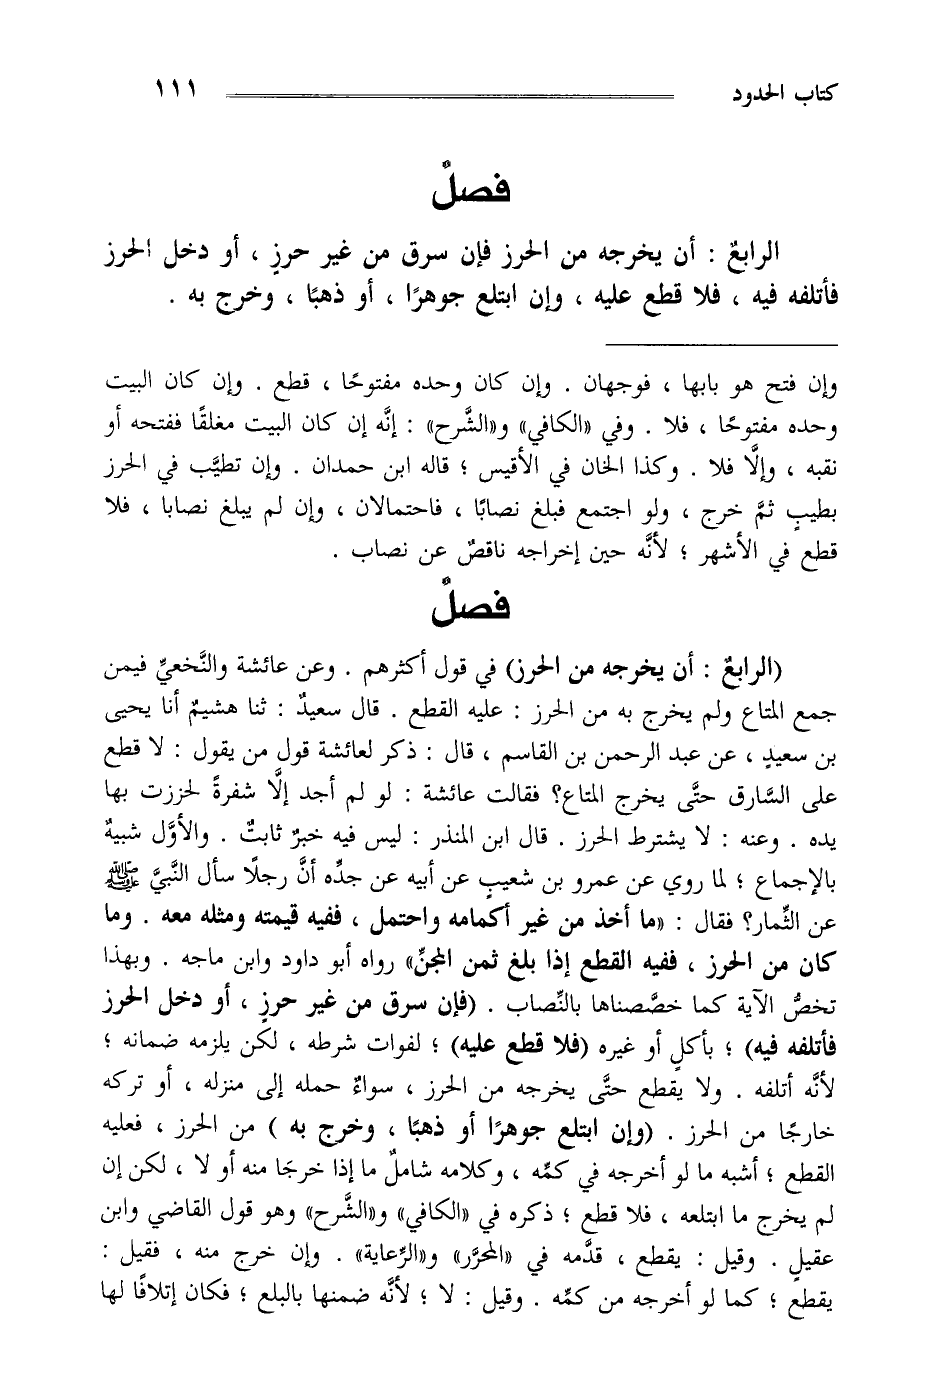 كتاب الحدود ١١١
فصلٌ
الرابعٌ : أن يخرجه من الحرز فإن سرق من غير حرزٍ ، أو دخل الحرز
فأتلفه فيه ، فلا قطع عليه ، وإن ابتلع جوهرًا ، أو ذهبًا ، وخرج به .
وإن فتح هو بابها ، فوجهان . وإن كان وحده مفتوحًا ، قطع . وإن كان البيت
وحده مفتوحًا ، فلا . وفي «الكافي» و«الشَّرح» : إنَّه إن كان البيت مغلقًا ففتحه أو
نقبه ، وإلَّا فلا . وكذا الخان في الأقيس ؛ قاله ابن حمدان . وإن تطيَّب في الحرز
بطيبٍ ثمَّ خرج ، ولو اجتمع فبلغ نصابًا ، فاحتمالان ، وإن لم يبلغ نصابا ، فلا
قطع في الأشهر ؛ لأنَّه حين إخراجه ناقصٌ عن نصاب .
فصلٌ
(الرابعٌ : أن يخرجه من الحرز) في قول أكثرهم . وعن عائشة والنَّخعيِّ فيمن
جمع المتاع ولم يخرج به من الحرز : عليه القطع . قال سعيدٌ : ثنا هشيمٌ أنا يحيى
بن سعيدٍ ، عن عبد الرحمن بن القاسم ، قال : ذكر لعائشة قول من يقول : لا قطع
على السَّارق حتَّى يخرج المتاع؟ فقالت عائشة : لو لم أجد إلَّا شفرةً لحززت بها
يده . وعنه : لا يشترط الحرز . قال ابن المنذر : ليس فيه خبرٌ ثابتٌ . والأوَّل شبيهٌ
بالإجماع ؛ لما روي عن عمرو بن شعيبٍ عن أبيه عن جدِّه أنَّ رجلًا سأل النَّبيَّ ﷺ
عن الثِّمار؟ فقال : «ما أخذ من غير أكمامه واحتمل ، ففيه قيمته ومثله معه . وما
كان من الحرز ، ففيه القطع إذا بلغ ثمن المجنِّ» رواه أبو داود وابن ماجه . وبهذا
تخصُّ الآية كما خصَّصناها بالنِّصاب . (فإن سرق من غير حرزٍ ، أو دخل الحرز
فأتلفه فيه) ؛ بأكلٍ أو غيره (فلا قطع عليه) ؛ لفوات شرطه ، لكن يلزمه ضمانه ؛
لأنَّه أتلفه . ولا يقطع حتَّى يخرجه من الحرز ، سواءٌ حمله إلى منزله ، أو تركه
خارجًا من الحرز . (وإن ابتلع جوهرًا أو ذهبًا ، وخرج به ) من الحرز ، فعليه
القطع ؛ أشبه ما لو أخرجه في كمِّه ، وكلامه شاملٌ ما إذا خرجَا منه أو لا ، لكن إن
لم يخرج ما ابتلعه ، فلا قطع ؛ ذكره في «الكافي» و«الشَّرح» وهو قول القاضي وابن
عقيلٍ . وقيل : يقطع ، قدَّمه في «المحرَّر» و«الرِّعاية» . وإن خرج منه ، فقيل :
يقطع ؛ كما لو أخرجه من كمِّه . وقيل : لا ؛ لأنَّه ضمنها بالبلع ؛ فكان إتلافًا لها